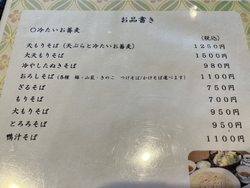 お品書き
〇冷たいお蕎麦
(税込)
天もりそば (天ぷらと冷たいお蕎麦) 1250円
大天もりそば 1500円
冷やしたぬきそば 980円
おろしそば 1100円
ざるそば 750円
もりそば 700円
大もりそば 950円
とろろそば 950円
鴨汁そば 1100円